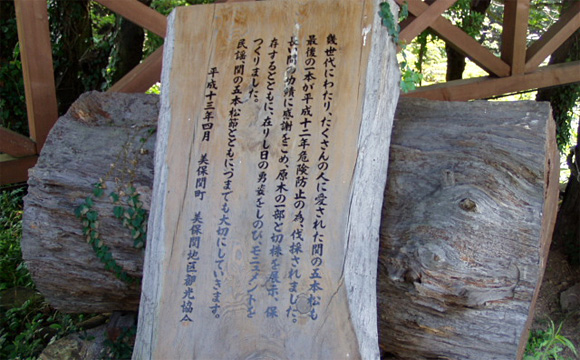 幾世代にわたり、たくさんの人に愛された関の五本松も
最後の一本が平成十二年危険防止の為、伐採されました。
長い間の功績に感謝をこめ、原木の一部と切株を展示、保
存するとともに、在りし日の勇姿をしのび、モニュメントを
つくりました。
民謡・関の五本松節とともにいつまでも大切にしていきます。
平成十三年四月 美保関町 美保関地区観光協会